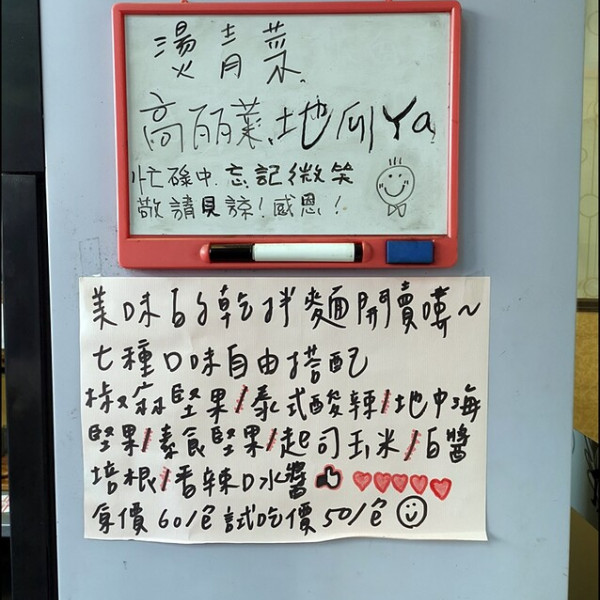 燙青菜
高丽菜、地瓜Ya
忙碌中.忘記微笑
敬請見諒!感恩!
美味的乾拌麵開賣嘍~
七種口味自由搭配
椒麻堅果/泰式酸辣/地中海
堅果/素食堅果/起司玉米/白醬
培根/香辣口水醬
原價60/包試吃價50/包